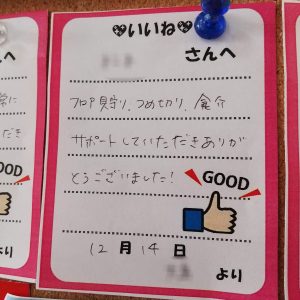 ♥いいね♥
さんへ
フロア見守り、つめ切り、食介
サポートしていただきありが
とうございました!
GOOD
12月14日
より
常に
だき
OOD